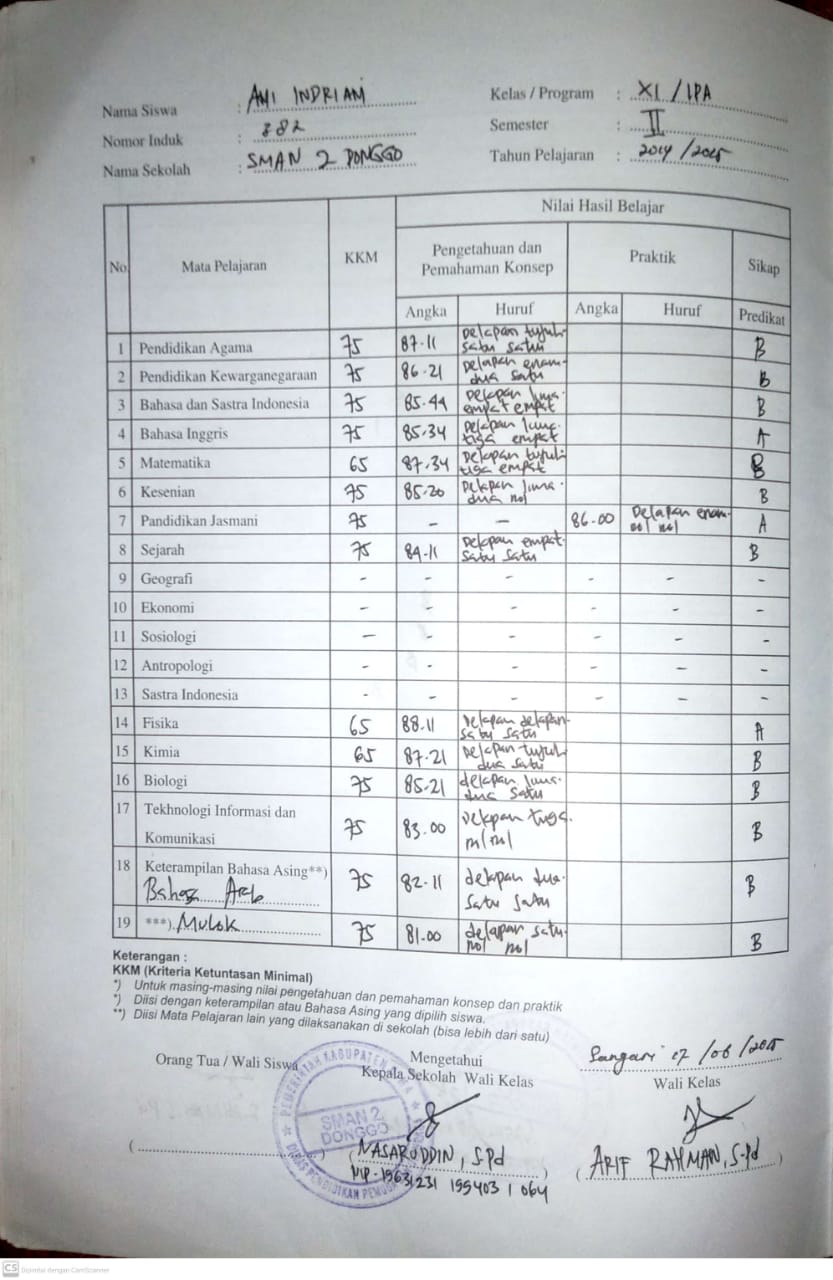 Nama Siswa : AYI INDRIANI Kelas / Program : XI / IPA
Nomor Induk : 382 Semester : II
Nama Sekolah : SMAN 2 DONGGO Tahun Pelajaran : 2014 / 2015
No Mata Pelajaran KKM Nilai Hasil Belajar
Pengetahuan dan Pemahaman Konsep Praktik Sikap
Angka Huruf Angka Huruf Predikat
1 Pendidikan Agama 75 87.11 Delapan tujuh satu satu B
2 Pendidikan Kewarganegaraan 75 86.21 Delapan enam dua satu B
3 Bahasa dan Sastra Indonesia 75 85.44 Delapan lima empat empat B
4 Bahasa Inggris 75 85.34 Delapan lima tiga empat A
5 Matematika 65 87.34 Delapan tujuh tiga empat B
6 Kesenian 75 85.20 Delapan lima dua nol B
7 Pandidikan Jasmani 75 - - 86.00 Delapan enam nol nol A
8 Sejarah 75 84.11 Delapan empat satu satu B
9 Geografi - - - - - -
10 Ekonomi - - - - - -
11 Sosiologi - - - - - -
12 Antropologi - - - - - -
13 Sastra Indonesia - - - - - -
14 Fisika 65 88.11 Delapan delapan satu satu A
15 Kimia 65 87.21 Delapan tujuh dua satu B
16 Biologi 75 85.21 delapan lima dua satu B
17 Tekhnologi Informasi dan
Komunikasi 75 83.00 Delapan tiga nol nol B
18 Keterampilan Bahasa Asing**)
Bahasa Arab 75 82.11 delapan dua satu satu B
19 ***) Mulok 75 81.00 delapan satu nol nol B
Keterangan :
KKM (Kriteria Ketuntasan Minimal)
*) Untuk masing-masing nilai pengetahuan dan pemahaman konsep dan praktik
*) Diisi dengan keterampilan atau Bahasa Asing yang dipilih siswa.
**) Diisi Mata Pelajaran lain yang dilaksanakan di sekolah (bisa lebih dari satu)
Sangari 17 / 06 / 2015
Orang Tua / Wali Siswa Mengetahui
Kepala Sekolah Wali Kelas Wali Kelas
PEMERINTAH KABUPATEN
SMAN 2
DONGGO
DINAS PENDIDIKAN PEMUDA
( ) (NASARUDDIN, S.Pd) (ARIF RAHMAN, S.Pd)
NIP. 19631231 199403 1 064
CS Dipindai dengan CamScanner